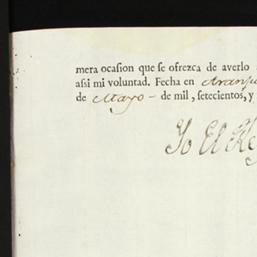 mera ocasion que se ofrezca de averlo
assi mi voluntad. Fecha en Aranju
de Mayo de mil, setecientos, y
Yo El Re